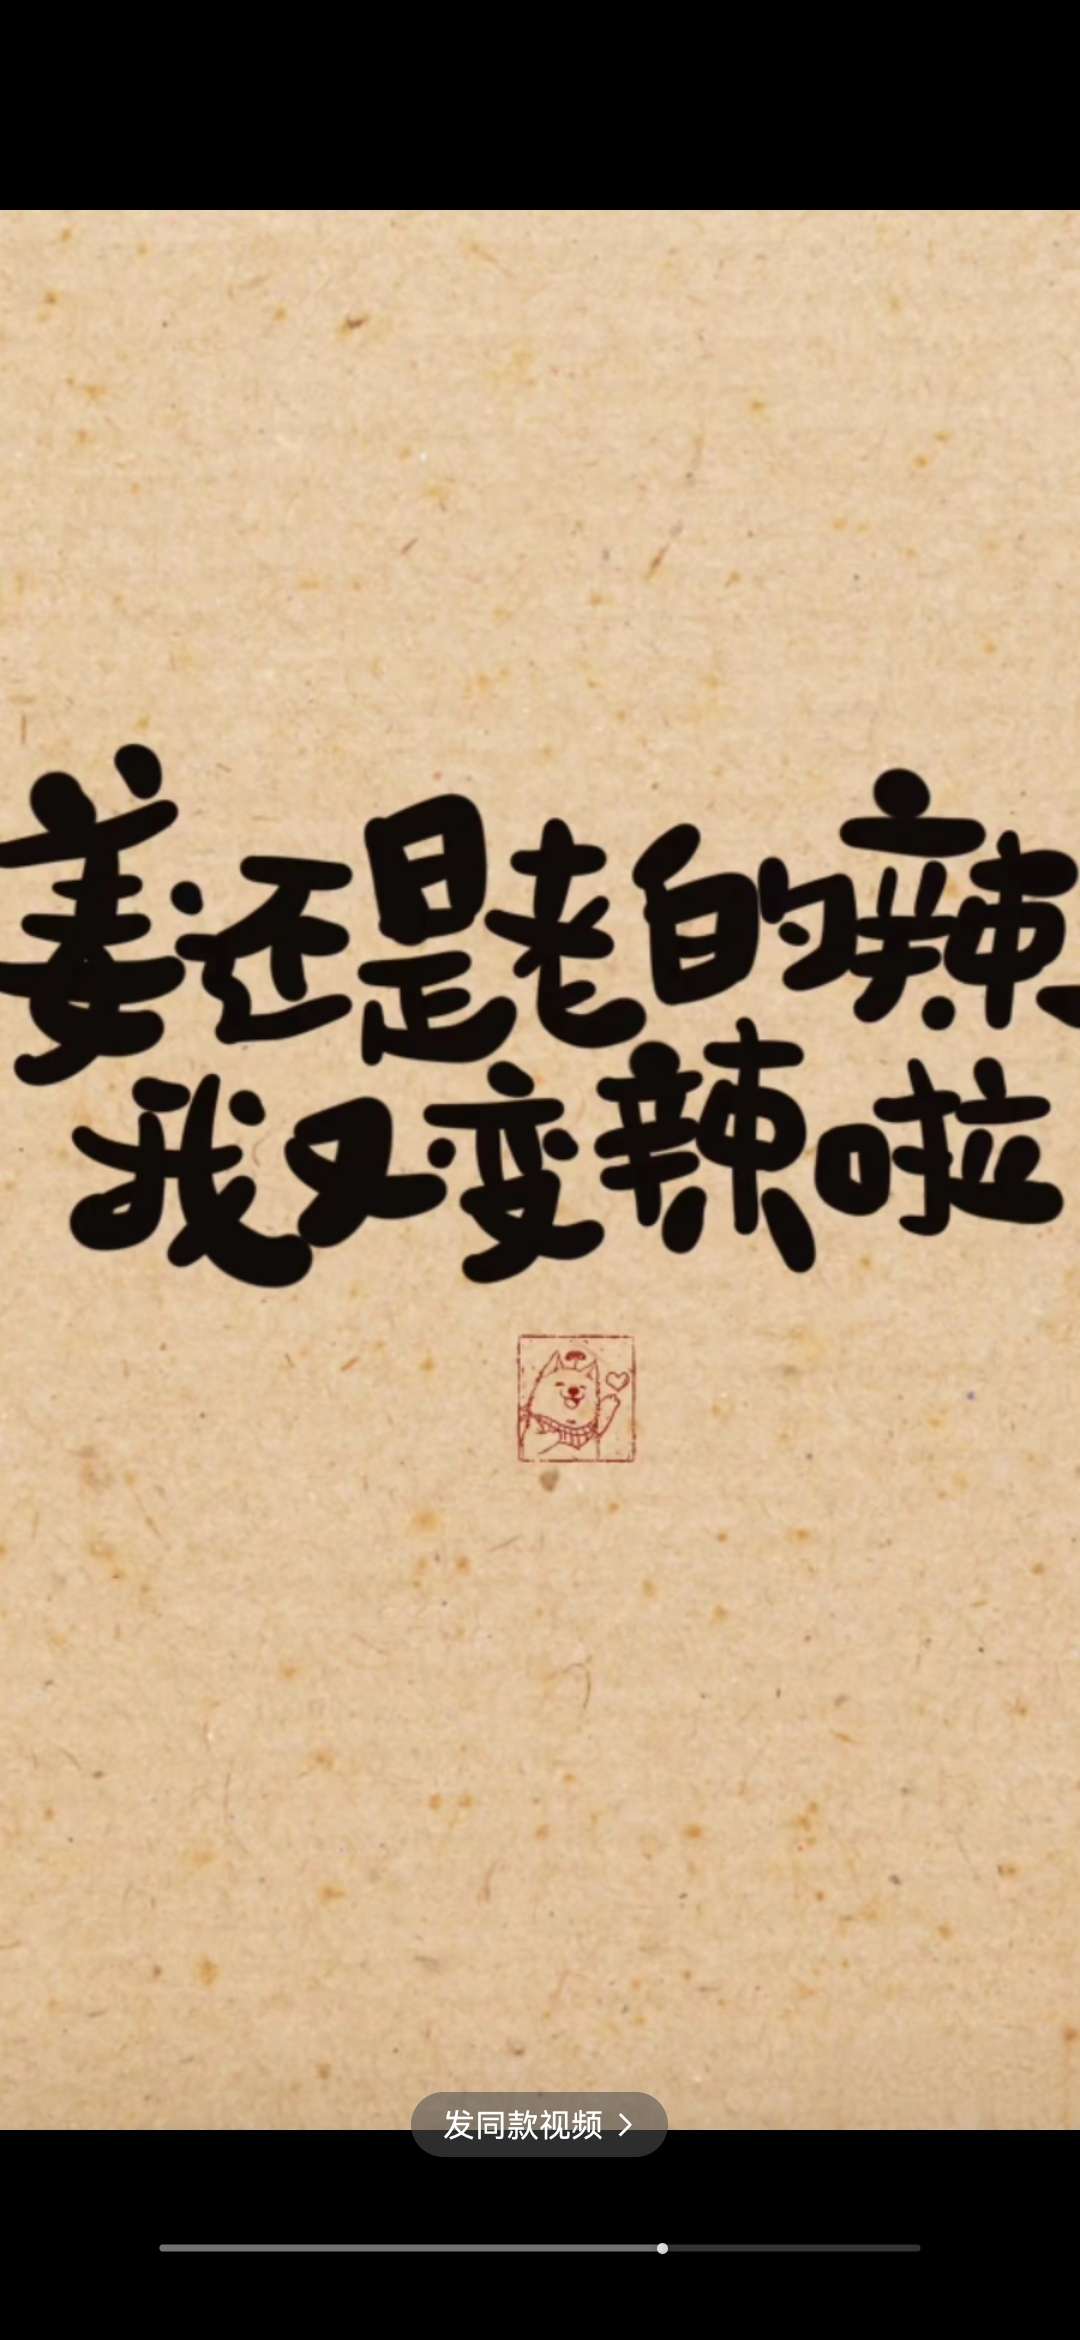 姜还是老的辣
我又变辣啦
发同款视频